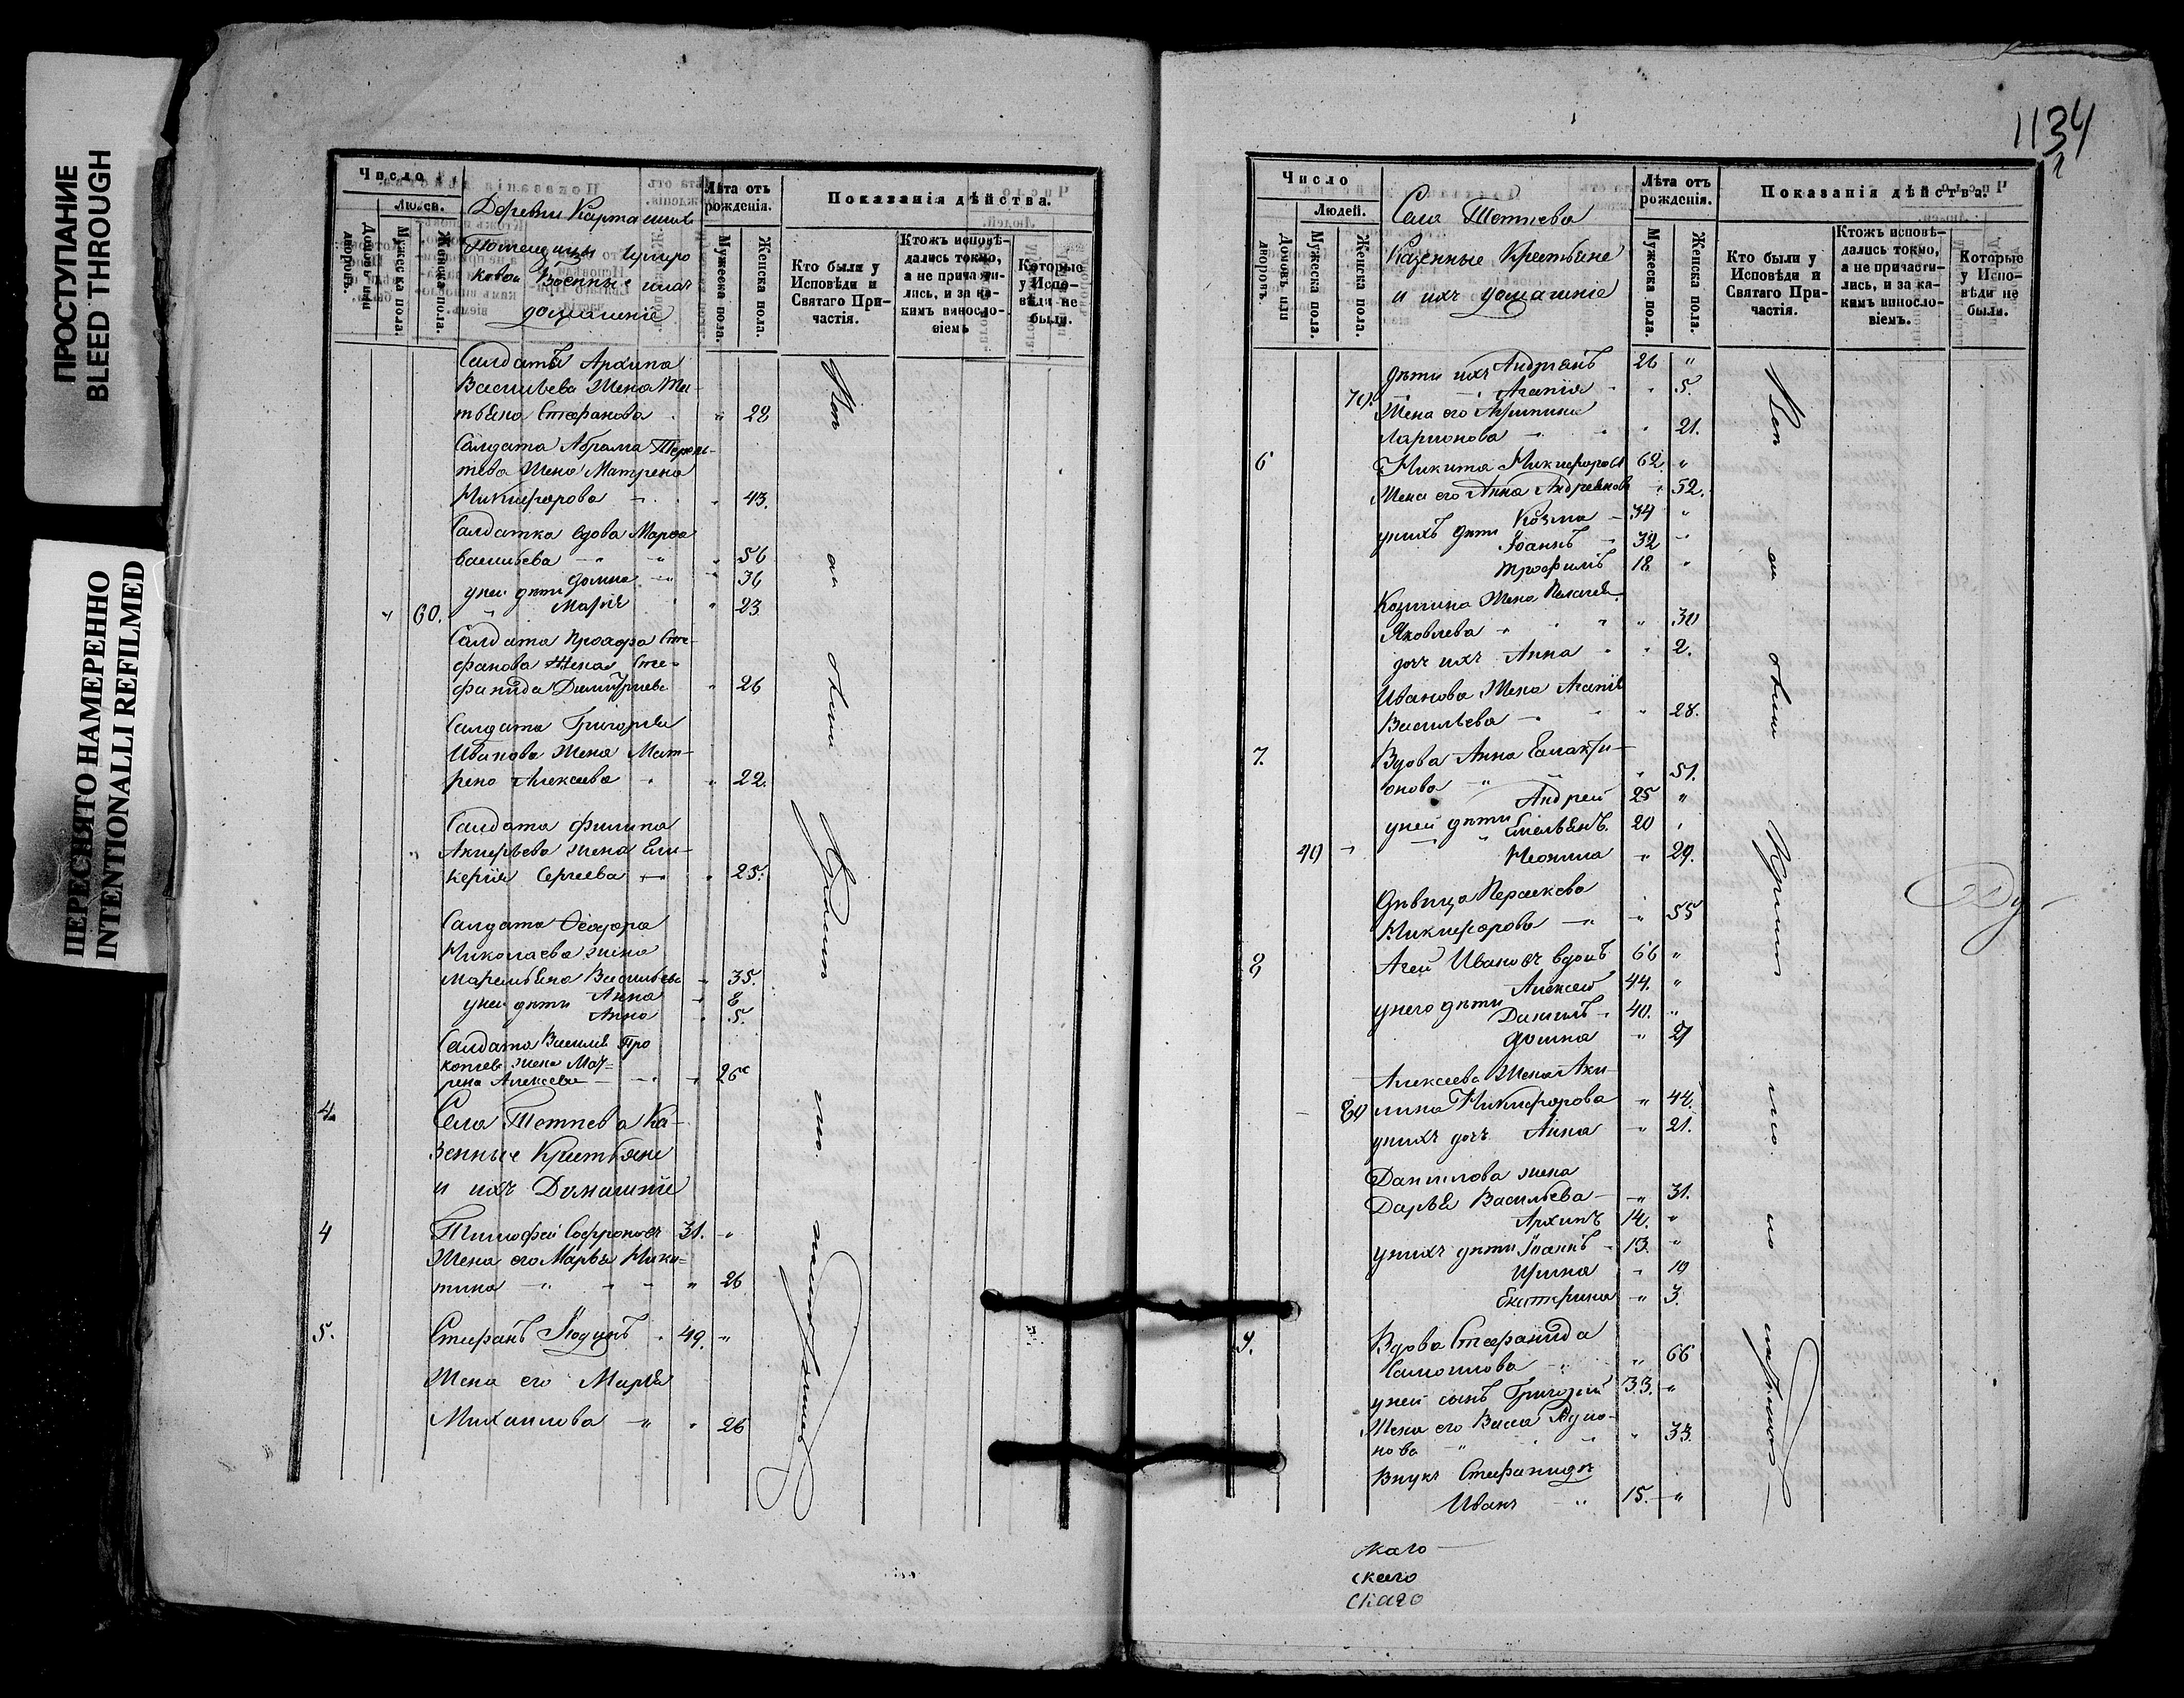 ПРОСТУПАНИЕ
BLEED THROUGH
ПЕРЕСНЯТО НАМЕРЕННО
INTENTIONALLI REFILMED
Число
Людей.
Домовъ или дворовъ.
Мужеска пола.
Женска пола.
Деревни
Помещицы
Военные
домашніе
Лѣта отъ рожденія.
Мужеска пола.
Женска пола.
Показанія дѣйства.
Кто были у Исповѣди и Святаго Причастія.
Ктожъ исповѣдались токмо, а не причастились, и за какимъ винословіемъ
Которые у Исповѣди не были.
Солдата Архипа
Васильева жена Та-
тьяна Стефанова 28
Солдата Абрама Терень-
тева жена Матрена
Никифорова 43.
Солдатка вдова Марѳа
Васильева 56
у ней дѣти Домна 36
60. Марія 23
Солдата Прохора Сте-
фанова жена Сте-
фанида Димитріева 26
Солдата Григорія
Иванова жена Мат-
рена Алексеева 22.
Солдата Филипа
жена Гли-
керія Сергеева 25.
Солдата Ѳеодора
Николаева жена
Маремьяна Васильева 35.
у ней дѣти Анна 8
Анна 5.
Солдата Василія Про
копіева жена Мат=
рена Алексеева 26
4. Села Тетнева Ка-
зенные Крестьяне
и ихъ Домашніе
4 Тимофей Софроновъ 31. "
Жена его Марья Ники=
тина " 26
5. Стефанъ Іюдинъ 49. "
Жена его Марья
Михаилова " 26
1134
Число
Людей.
Домовъ или дворовъ.
Мужеска пола.
Женска пола.
Села Тетнева
Казенные Крестьяне
и ихъ домашніе
Лѣта отъ рожденія.
Мужеска пола.
Женска пола.
Показанія дѣйства.
Кто были у Исповѣди и Святаго Причастія.
Ктожъ исповѣдались токмо, а не причастились, и за какимъ винословіемъ.
Которые у Исповѣди не были.
дѣти ихъ Андреянъ 26 "
70. Агапія " 5.
Жена его Агрипина
Ларионова " 21.
6 Никита Никифоровъ 62. "
Жена его Анна Андреянова " 52.
Козма 34 "
у нихъ дѣти Іоаннъ 32 "
Трофимъ 18 "
Козмина жена Пелагея
Яковлева " 30
дочь ихъ Анна " 2.
Иванова жена Агапія
Васильева " 28.
7. Вдова Анна Галакти-
онова " 51.
Андрей 25 "
у ней дѣти Емельянъ 20 "
40 Неонила " 29.
Дѣвица Параскева
Никифорова " 55
8 Агей Ивановъ вдовъ 66 "
Алексей 44. "
у него дѣти Данилъ 40. "
Домна "
Алексеева жена Аки-
80 лина Никифорова " 44.
у нихъ дочь Анна " 21.
Данилова жена
Дарья Васильева " 31.
Архипъ 14. "
у нихъ дѣти Іоаннъ 13. "
Ирина " 10
Екатерина " 3.
9. Вдова Стефанида
Самоилова " 66
у ней сынъ Григорій 33. "
Жена его Васса
нова " 33.
Внукъ Стефаниды
Иванъ 15. "
каго
скаго
скаго